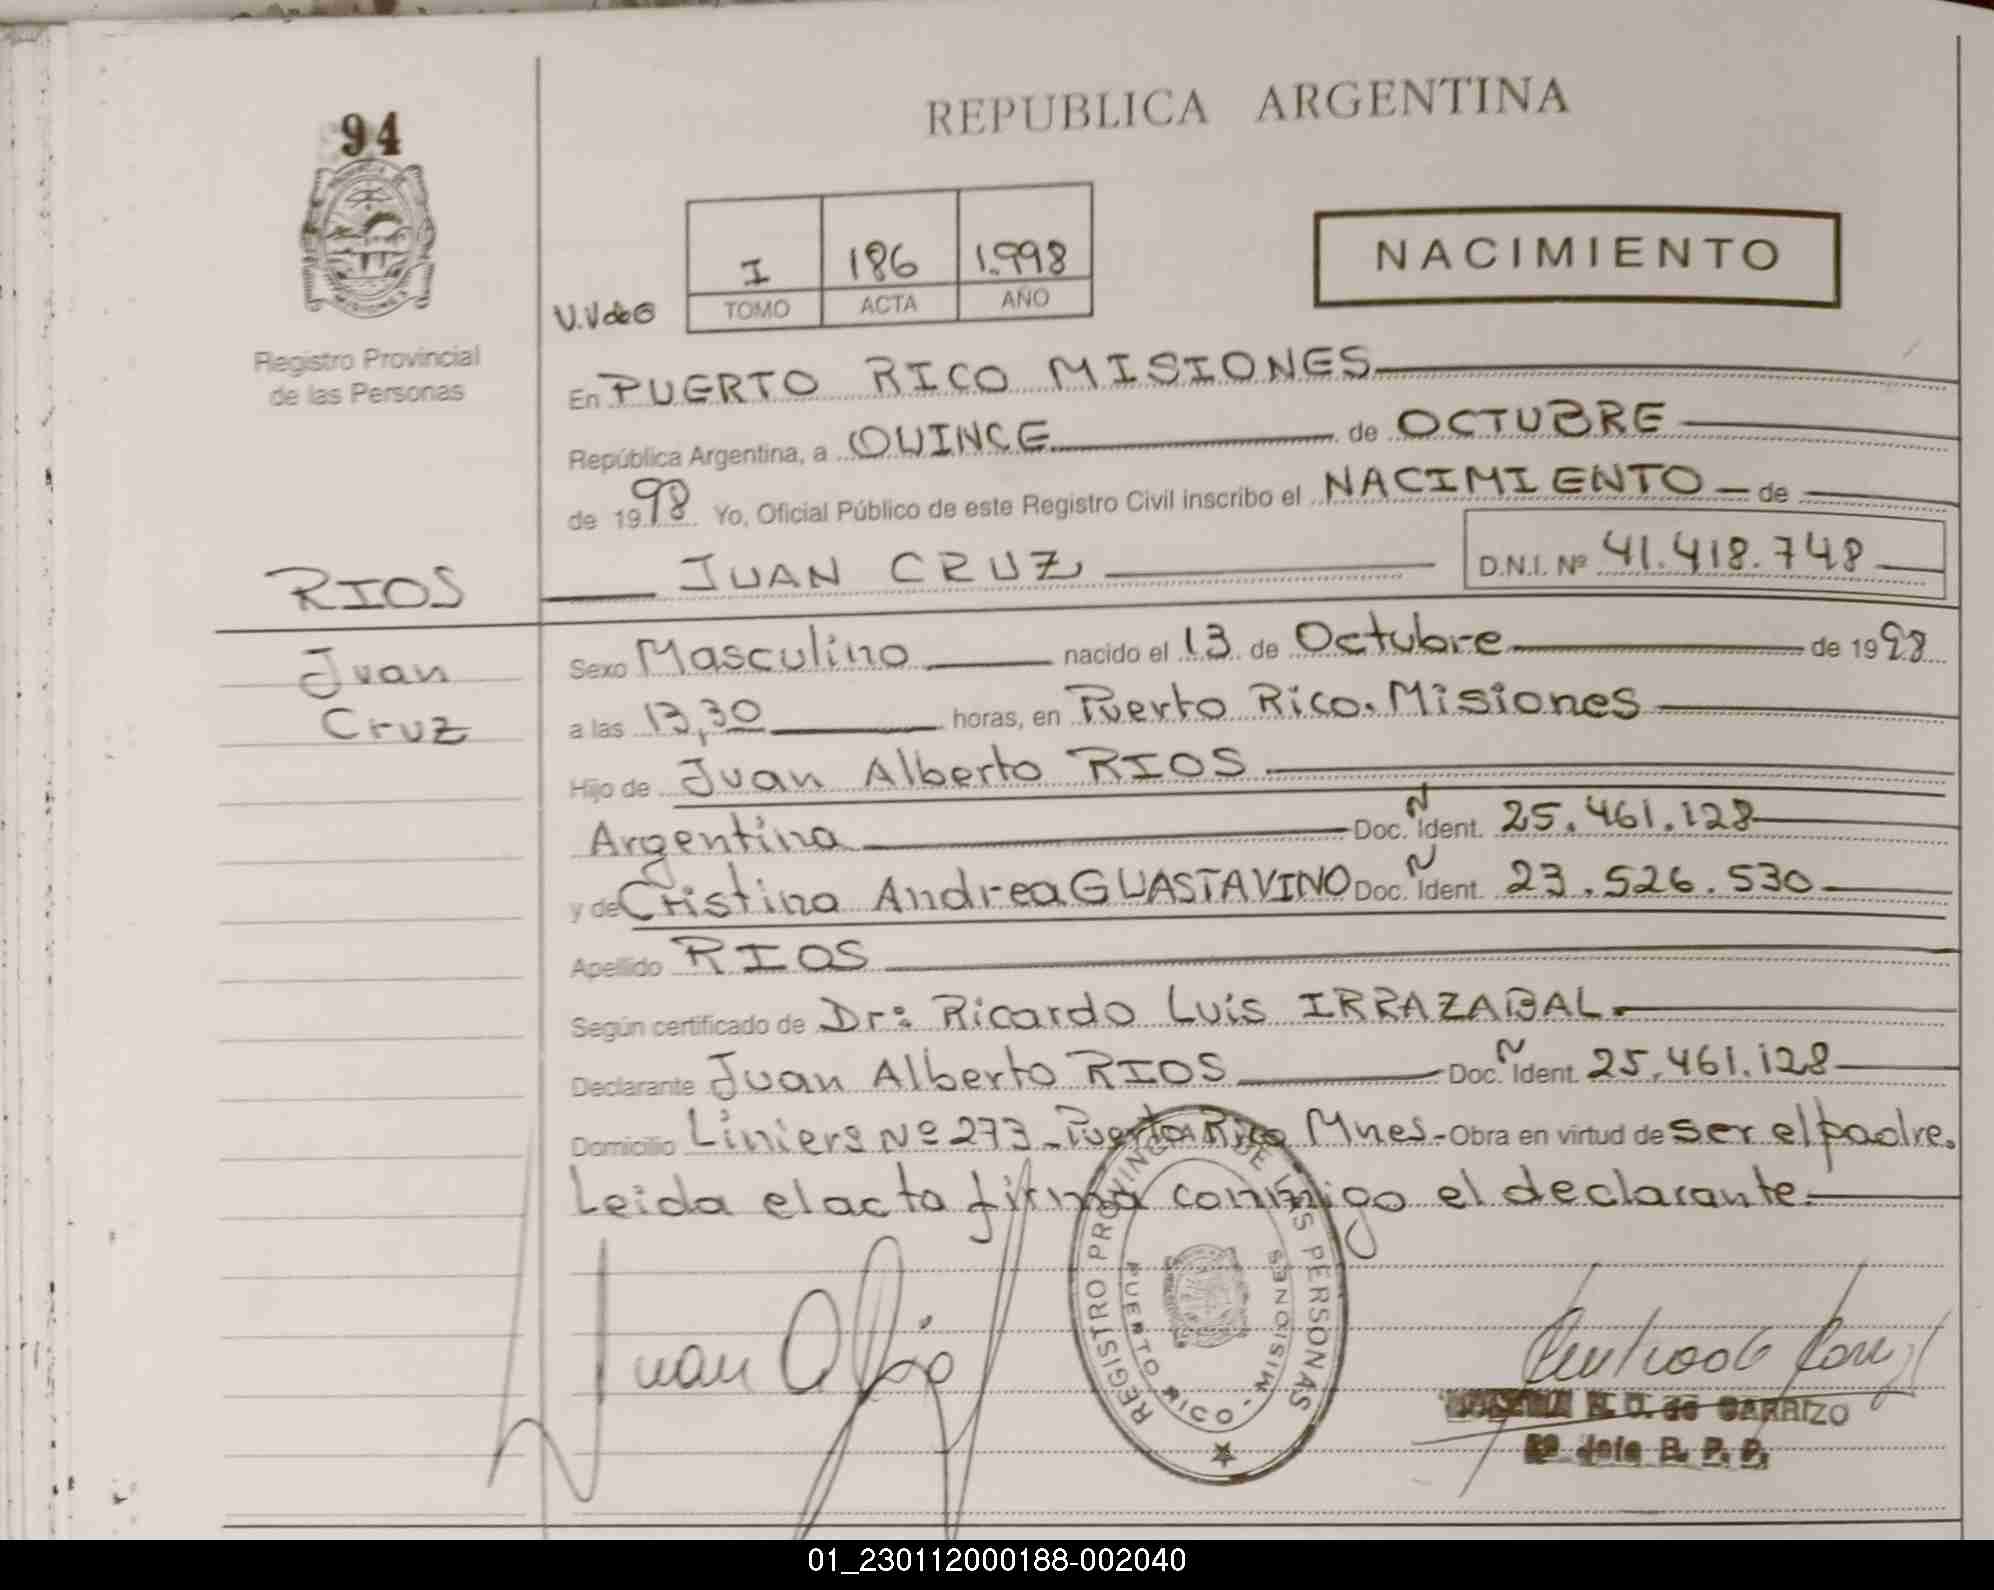 94
Registro Provincial
de las Personas
REPUBLICA ARGENTINA
NACIMIENTO
V.V de G
I 186 1.998
TOMO ACTA AÑO
En PUERTO RICO MISIONES
República Argentina, a QUINCE de OCTUBRE
de 1998 Yo, Oficial Público de este Registro Civil inscribo el NACIMIENTO de
JUAN CRUZ D.N.I. Nº 41.418.748
RIOS
Juan
Cruz
Sexo Masculino nacido el 13 de Octubre de 1998
a las 13,30 horas, en Puerto Rico. Misiones
Hijo de Juan Alberto RIOS
Argentina Doc. Ñ Ident. 25.461.128
y de Cristina Andrea GUASTAVINO Doc. Ñ Ident. 23.526.530
Apellido RIOS
Según certificado de Dr: Ricardo Luis IRRAZABAL.
Declarante Juan Alberto RIOS Doc. Ñ Ident. 25.461.128
Domicilio Liniers Nº 273 - Puerto Rico Mnes.- Obra en virtud de ser el padre.
Leida el acta firma conmigo el declarante.
REGISTRO PROVINCIAL DE LAS PERSONAS
PUERTO RICO - MISIONES
Juan
R. O. de CARRIZO
2º Jefe R. P. P.
01_230112000188-002040